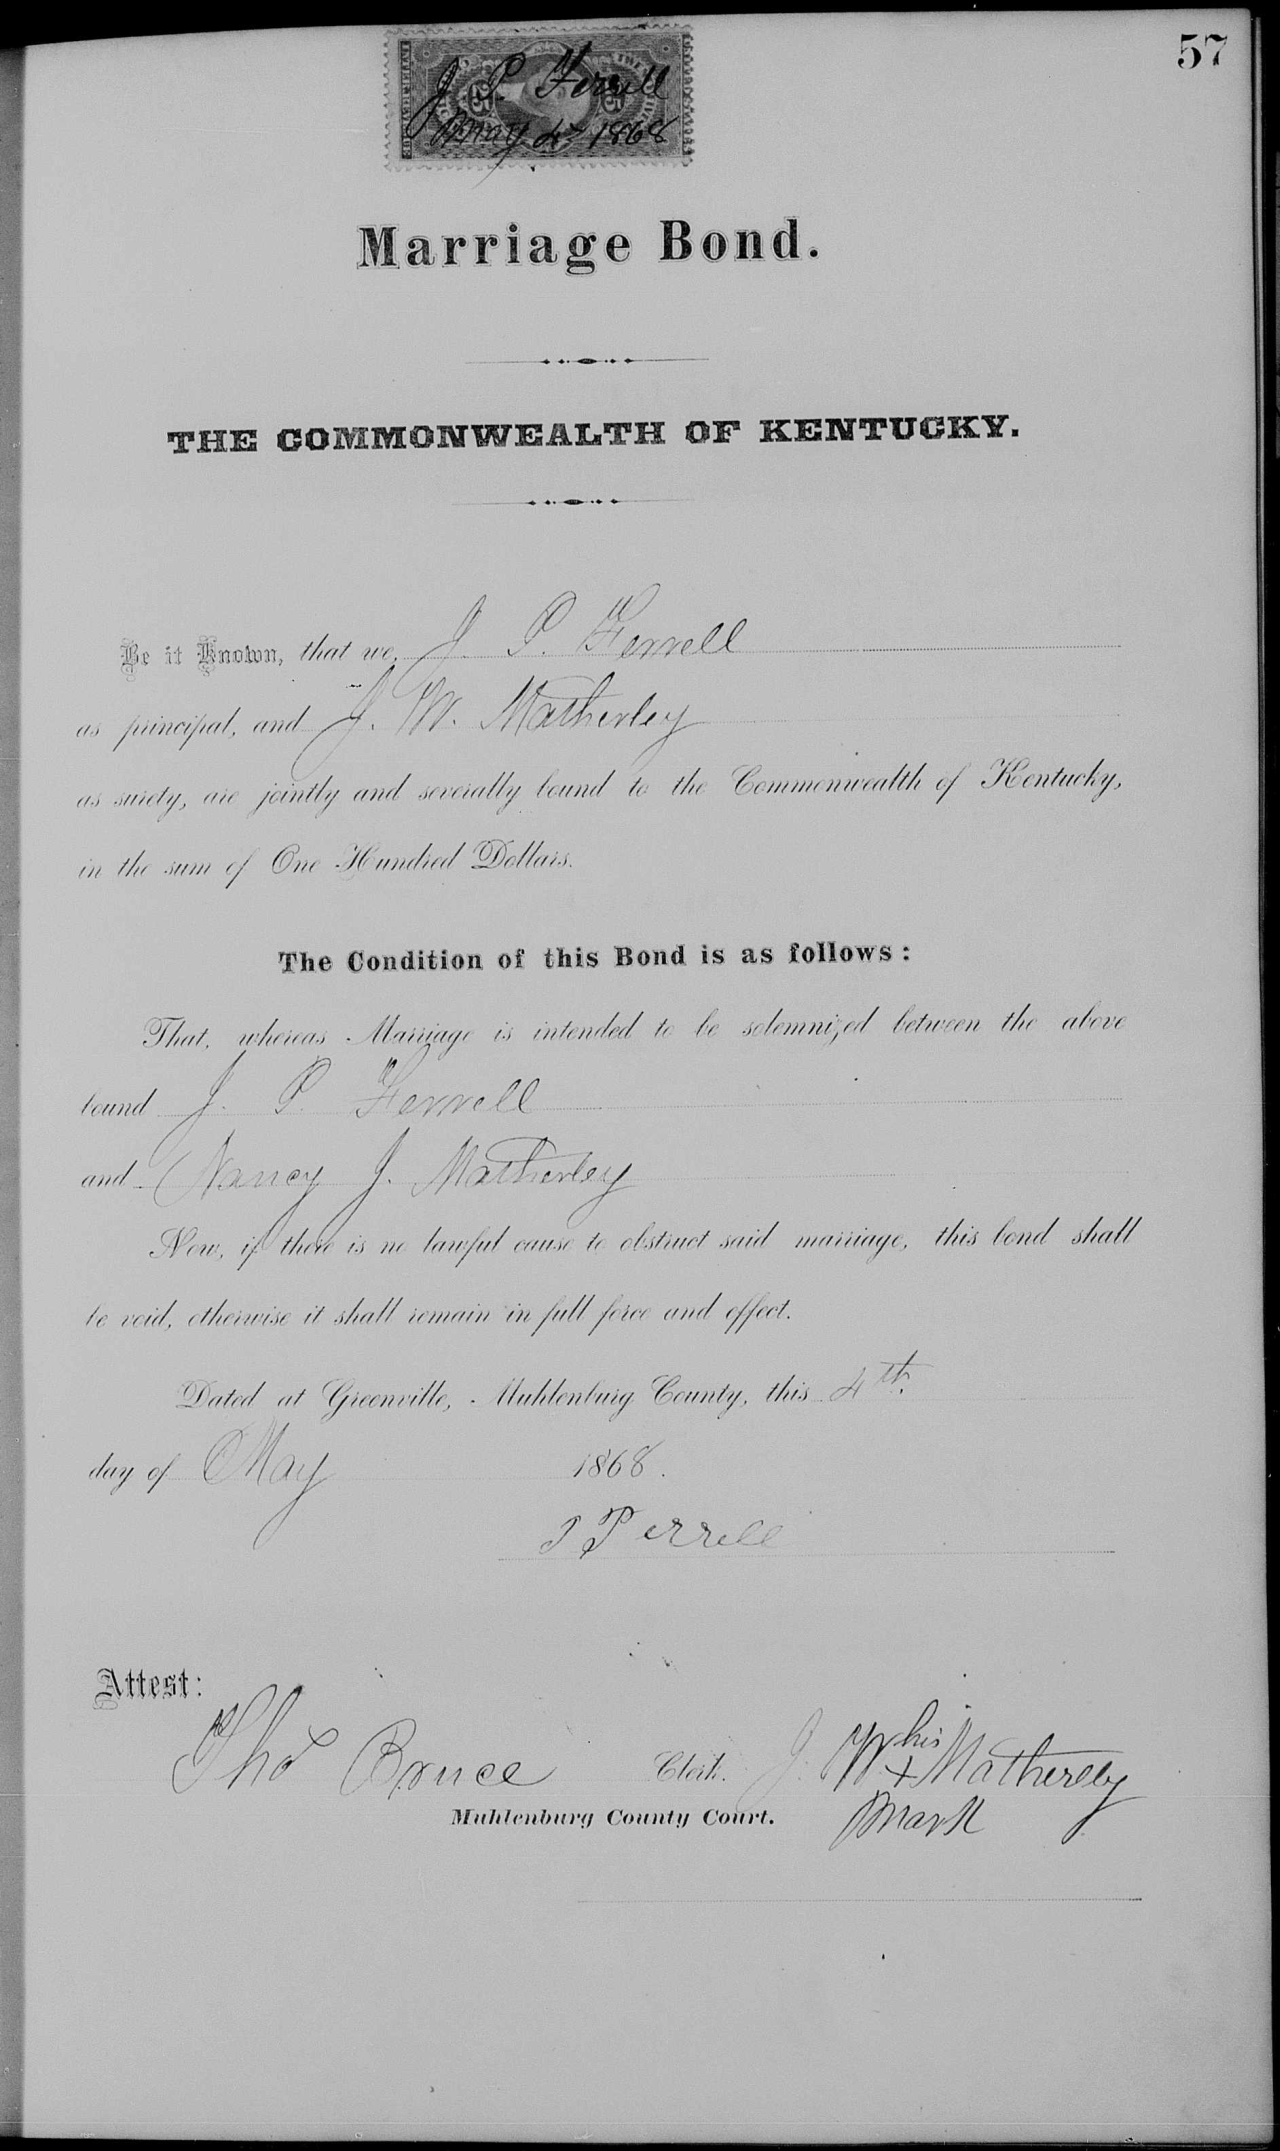 57
J. P. Ferrell
May 4th 1868
Marriage Bond.
THE COMMONWEALTH OF KENTUCKY.
Be it Known, that we, J. P. Ferrell
as principal, and J. W. Matherley
as surety, are jointly and severally bound to the Commonwealth of Kentucky,
in the sum of One Hundred Dollars.
The Condition of this Bond is as follows:
That, whereas Marriage is intended to be solemnized between the above
bound J. P. Ferrell
and Nancy J. Matherley
Now, if there is no lawful cause to obstruct said marriage, this bond shall
be void, otherwise it shall remain in full force and effect.
Dated at Greenville, Muhlenburg County, this 4th.
day of May 1868.
J P Ferrell
Attest:
Tho Bruce Clerk. J. W his x mark Matherley
Muhlenburg County Court.